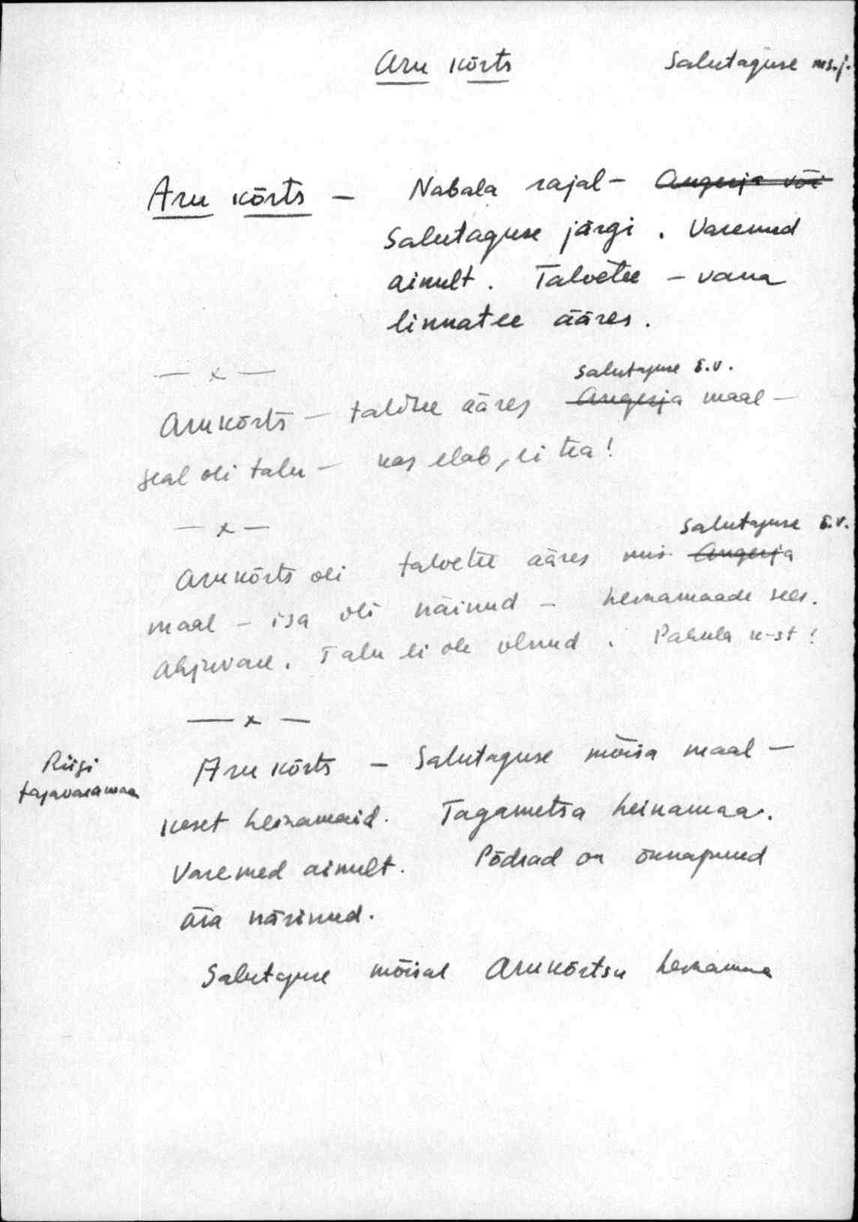 Aru kõrts Salutaguse ms.j.
Aru kõrts — Nabala rajal — Angerja või
Salutaguse järgi. Varemed
ainult. Talvetee — vana
linnatee ääres.
— x —
Salutaguse s.v.
Arukõrts — talvtee ääres Angerja maal —
seal oli talu — kas elab, ei tea!
— x —
Salutaguse s.v.
Arukõrts oli talvetee ääres mis Angerja
maal — isa oli näinud — heinamaade sees.
Ahjuvare. Talu ei ole olnud. Pahula k-st!
— x —
Aru kõrts — Salutaguse mõisa maal —
Riigi
tagavaramaa
keset heinamaid. Tagametsa heinamaa.
Varemed ainult. Põdrad on õunapuud
ära närinud.
Salutaguse mõisal Arukõrtsu heinamaa